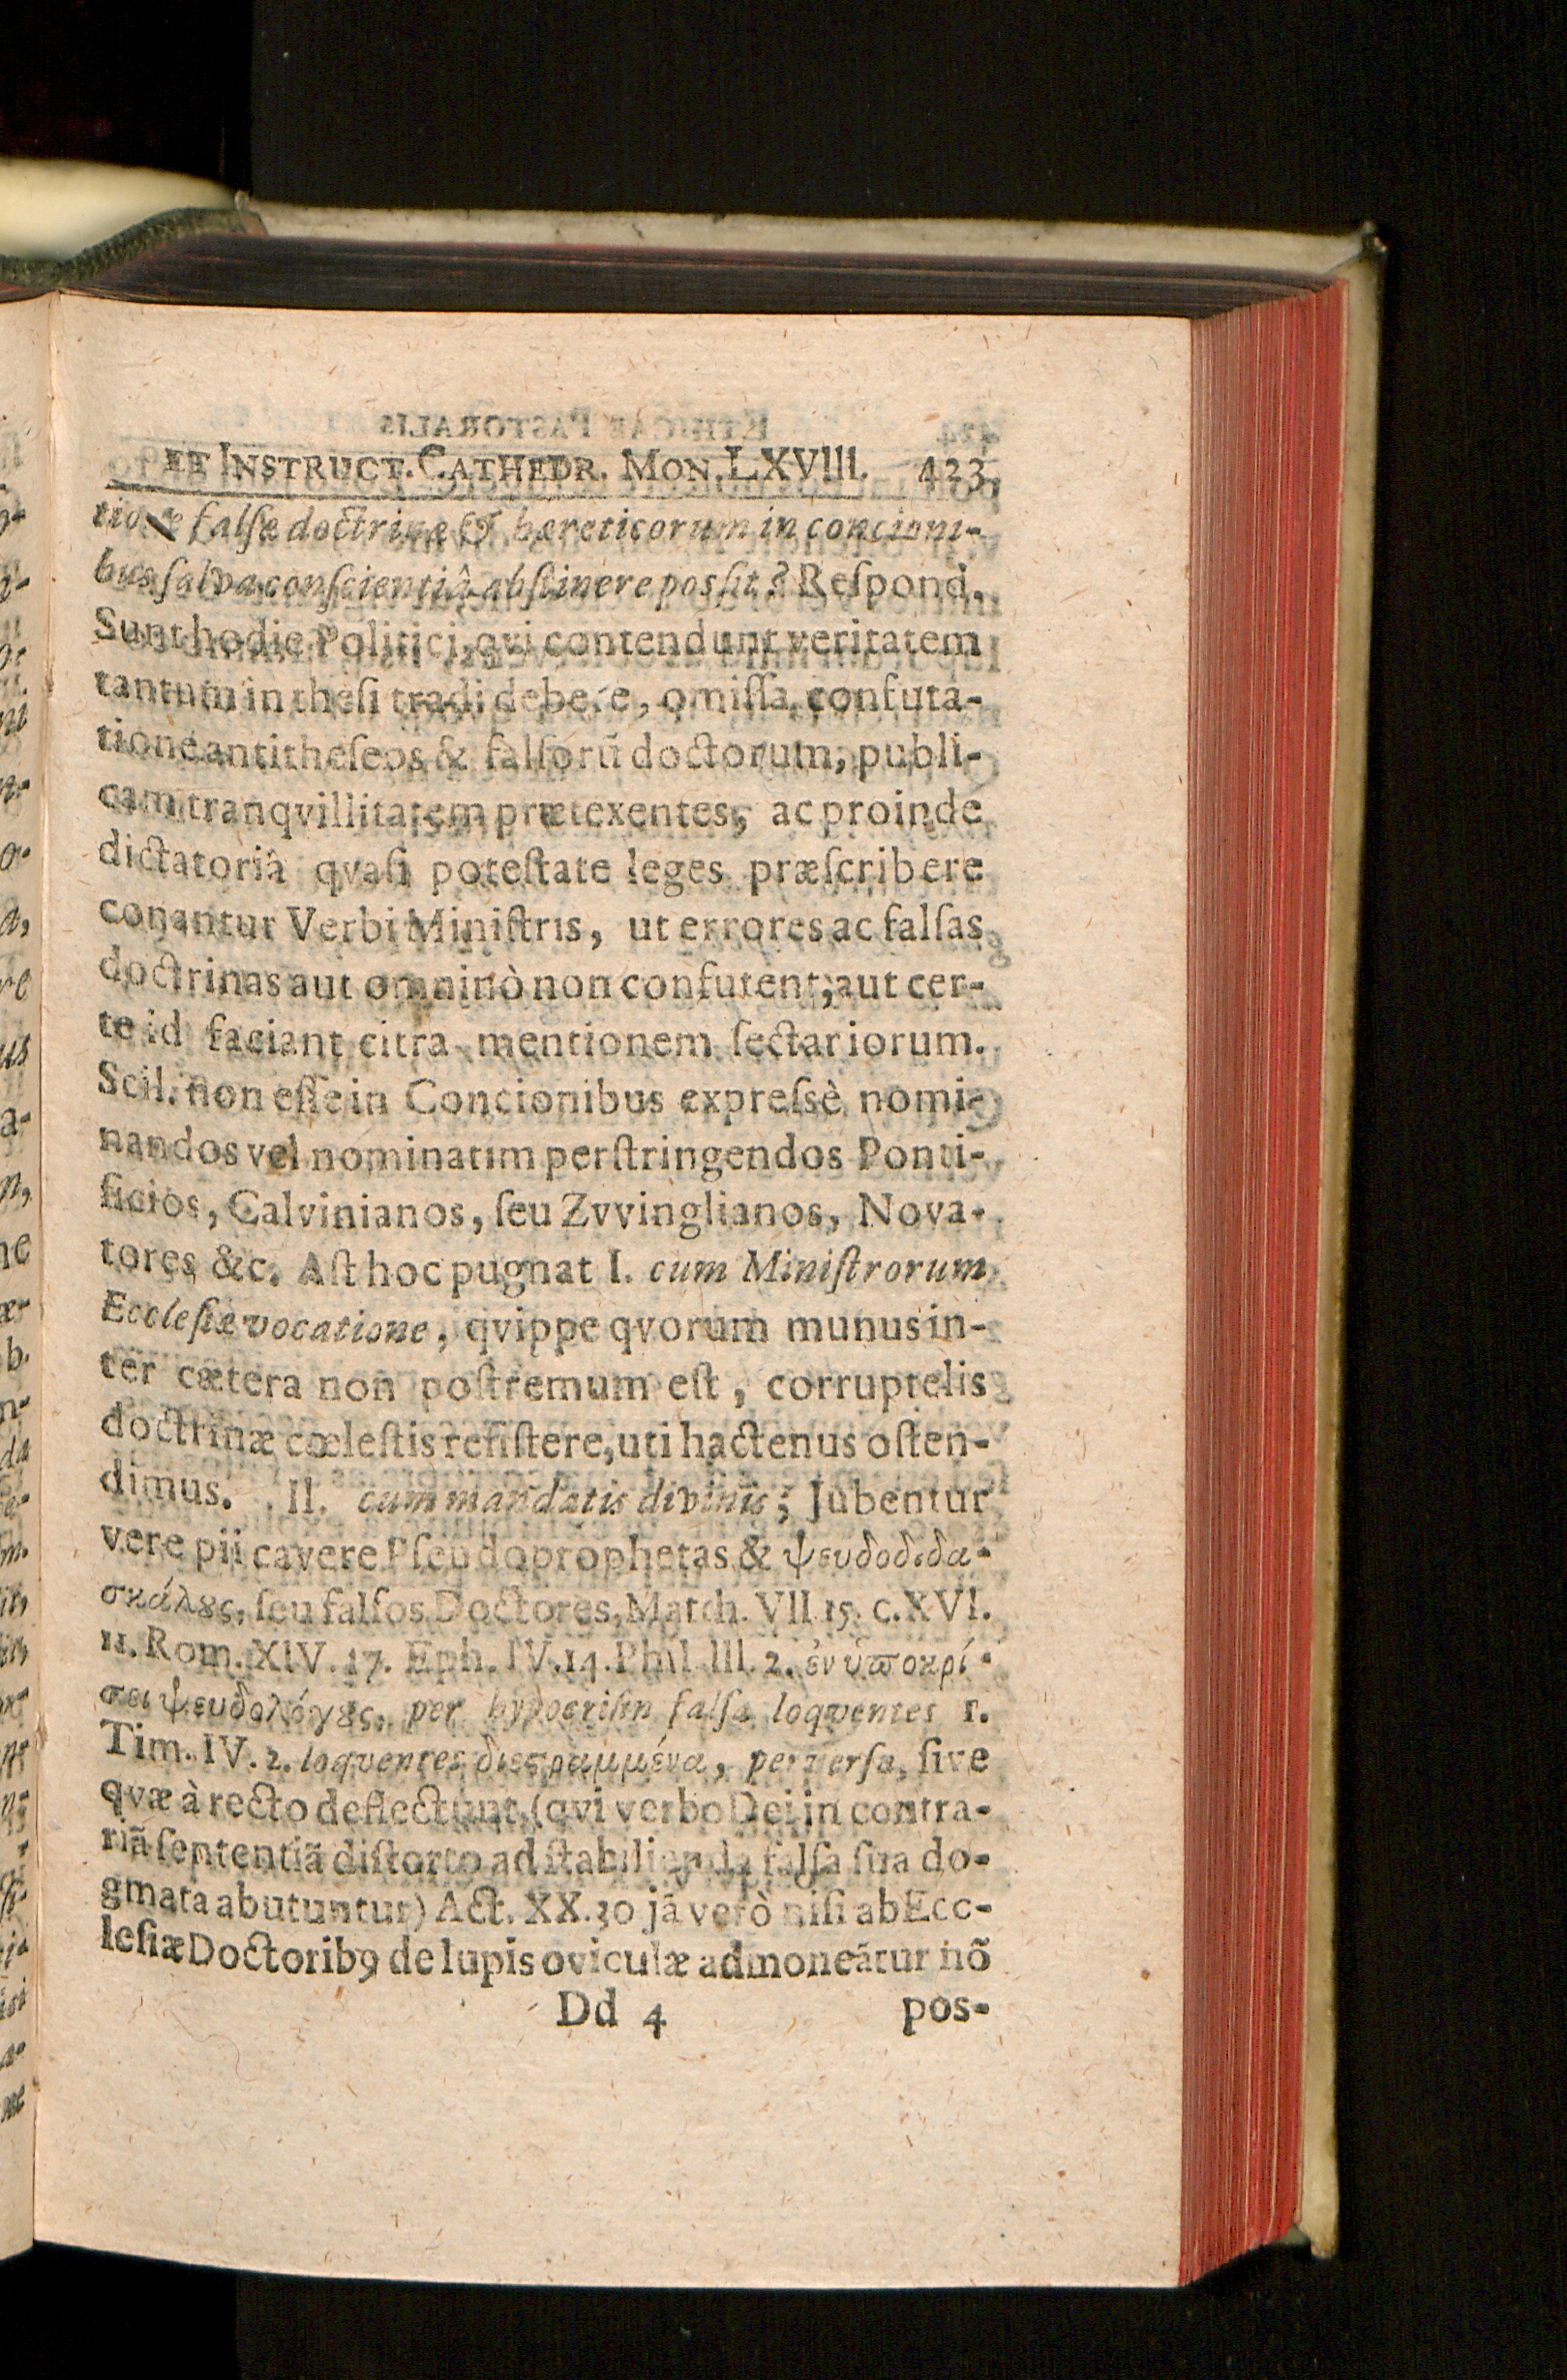 ET INSTRUCT. CATHEDR. MON. LXVIII. 423
tione falſæ doctrinæ & hæreticorum in concioni-
bus ſalva conſcientiâ abſtinere possit? Reſpond.
Sunt hodie Politici, qvi contendunt veritatem
tantum in theſi tradi debere, omiſſa confuta-
tione antitheſeos & falſorũ doctorum, publi-
cam tranqvillitatem prætexentes, ac proinde
dictatoriâ qvaſi poteſtate leges præſcribere
conantur Verbi Miniſtris, ut errores ac falſas
doctrinas aut omninò non confutent, aut cer-
te id faciant citra mentionem ſectariorum.
Scil. non eſſe in Concionibus expreſsè nomi-
nandos vel nominatim perſtringendos Ponti-
ficios, Calvinianos, ſeu Zvvinglianos, Nova-
tores &c. Aſt hoc pugnat I. cum Miniſtrorum
Eccleſiæ vocatione, qvippe qvorum munus in-
ter cætera non poſtremum eſt, corruptelis
doctrinæ cœleſtis reſiſtere, uti hactenus oſten-
dimus. II. cum mandatis divinis; Jubentur
vere pii cavere Pſeudoprophetas & ψευδοδιδα-
σκάλȣς, ſeu falſos Doctores, Matth. VII 15. c. XVI.
11. Rom. XIV. 17. Eph. IV. 14. Phil III. 2. ἐν ὑποκρί-
σει ψευδολόγȣς, per hypocriſin falſa loqventes 1.
Tim. IV. 2. loqventes διεϛραμμένα, perverſa, ſive
qvæ à recto deflectunt, (qvi verbo Dei in contra-
riã ſententiã diſtorto ad ſtabilienda falſa ſua do-
gmata abutuntur) Act. XX. 30 jã verò niſi ab Ecc-
leſiæ Doctoribꝰ de lupis oviculæ admoneãtur nõ
Dd 4 pos-